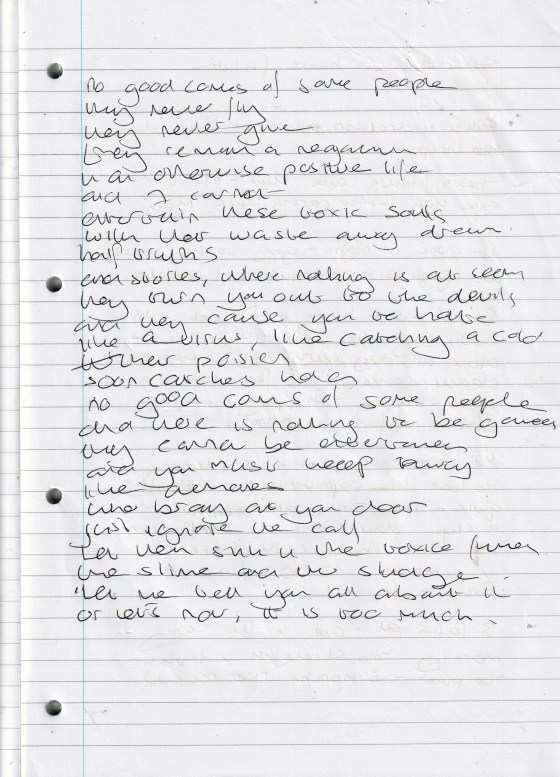 no good comes of some people
they never try
they never give
they remain a negative
in an otherwise positive life
and I cannot
entertain these toxic souls
with their waste away dream
half truths
and stories, where nothing is as seem
they turn you out to the devils
and they cause you to hate
like a virus, like catching a cold
their poison
soon catches hold
no good comes of some people
and there is nothing to be gained
they cannot be entertained
and you must keep away
like demons
who bray at your door
just ignore the call
let them sink in the toxic fumes
the slime and the sludge
let me tell you all about it
or let's not, it is too much.